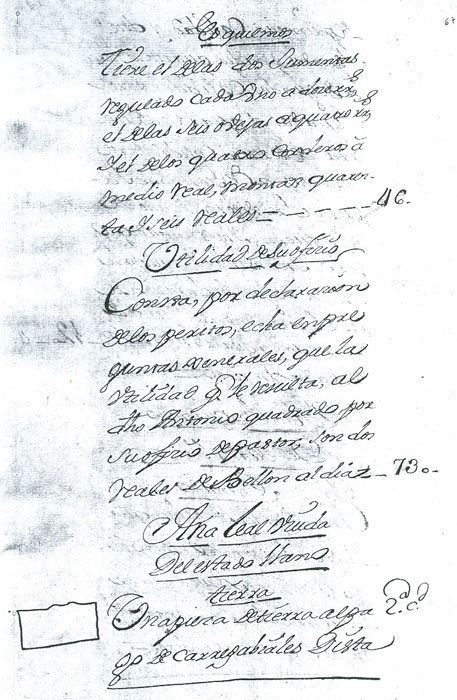 67
Esquilmos
Tiene el delas dos Jumentas
regulado cada Uno a doze rrs
el delas seis obejas a quatro rrs
Y el delos quatro Corderos â
medio real, montan quaren-
ta Y seis reales = - - - - 46.
Utilidad de su ofizio
Consta, por declarazion
delos peritos, echa en pre
guntas Generales, que las
Utilidad q.e le resulta, al
dho Antonio quadrado por
su ofizio de pastor, son dos
reales de Bellon al dia = 730
Ana Leal Viuda
Del estado llano
tierra
Una pieza de tierra al pa
go de Carregabiales Dista
2.a c.d